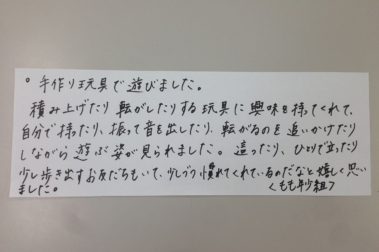 。手作り玩具で遊びました。
積み上げたり転がしたりする玩具に興味を持ってくれて、
自分で持ったり、振って音を出したり、転がるのを追いかけたり
しながら遊ぶ姿が見られました。這ったり、ひとりで立ったり
少し歩き出すお友だちもいて、少しづつ慣れてくれているのだなと嬉しく思い
ました。
くもも年少組〉